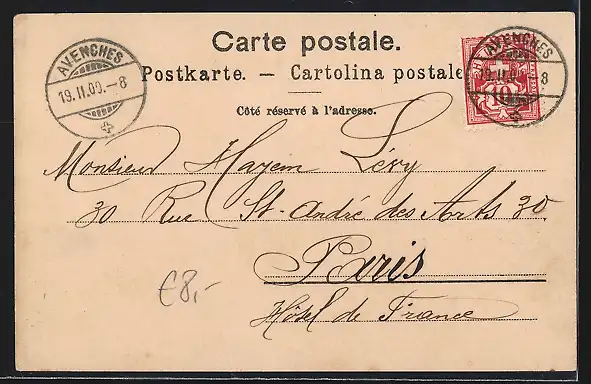 Carte postale.
Postkarte. — Cartolina postale
Côté réservé à l'adresse.
AVENCHES
19.II.00.-8
AVENCHES
19.II.00 8
10
Monsieur Hayem Lévy
30 Rue St-André des Arts 30
Paris
Hôtel de France
€8,-